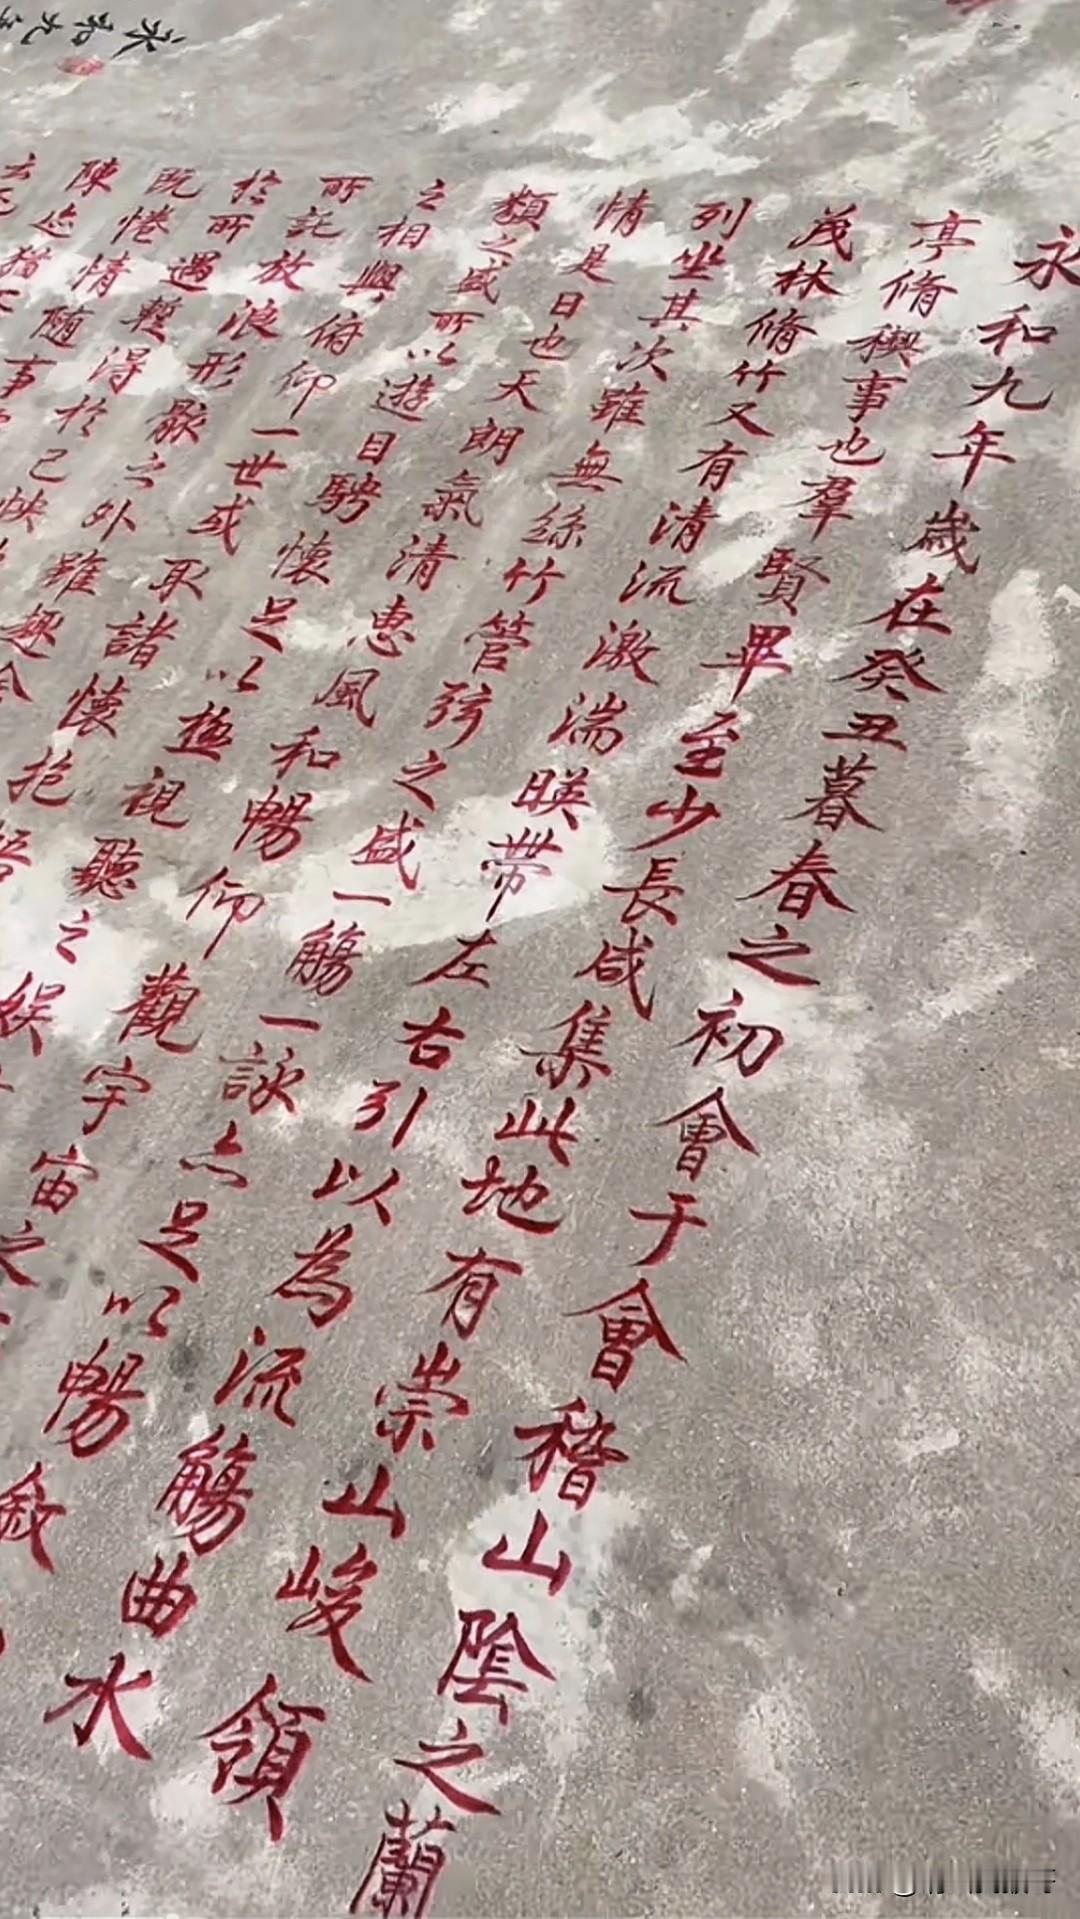 永和九
永和九年歲在癸丑暮春之初會于會稽山陰之蘭
亭脩禊事也羣賢畢至少長咸集此地有崇山峻領
茂林脩竹又有清流激湍暎帶左右引以為流觴曲水
列坐其次雖無絲竹管弦之盛一觴一詠亦足以暢敘
情是日也天朗氣清惠風和暢仰觀宇宙之
類之盛所以遊目騁懷足以極視聽之娛
之相與俯仰一世或取諸懷抱悟
所託放浪形骸之外雖趣
於所遇暫得於己怏
既惓情隨事
陳迹猶